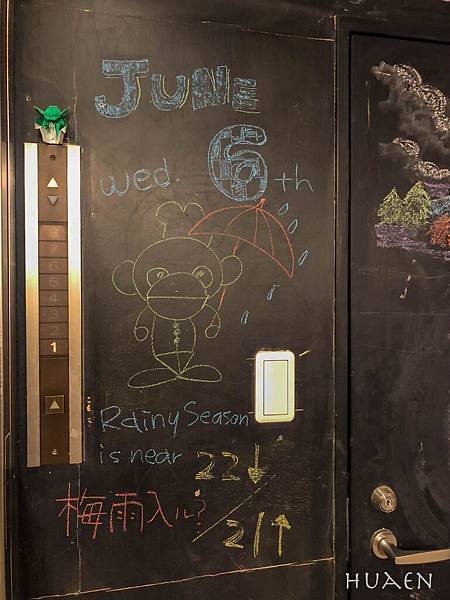 JUNE
wed. 6th
Rainy Season
is near
22↓
梅雨入り?
21↑
6
5
4
3
2
1
HUAEN